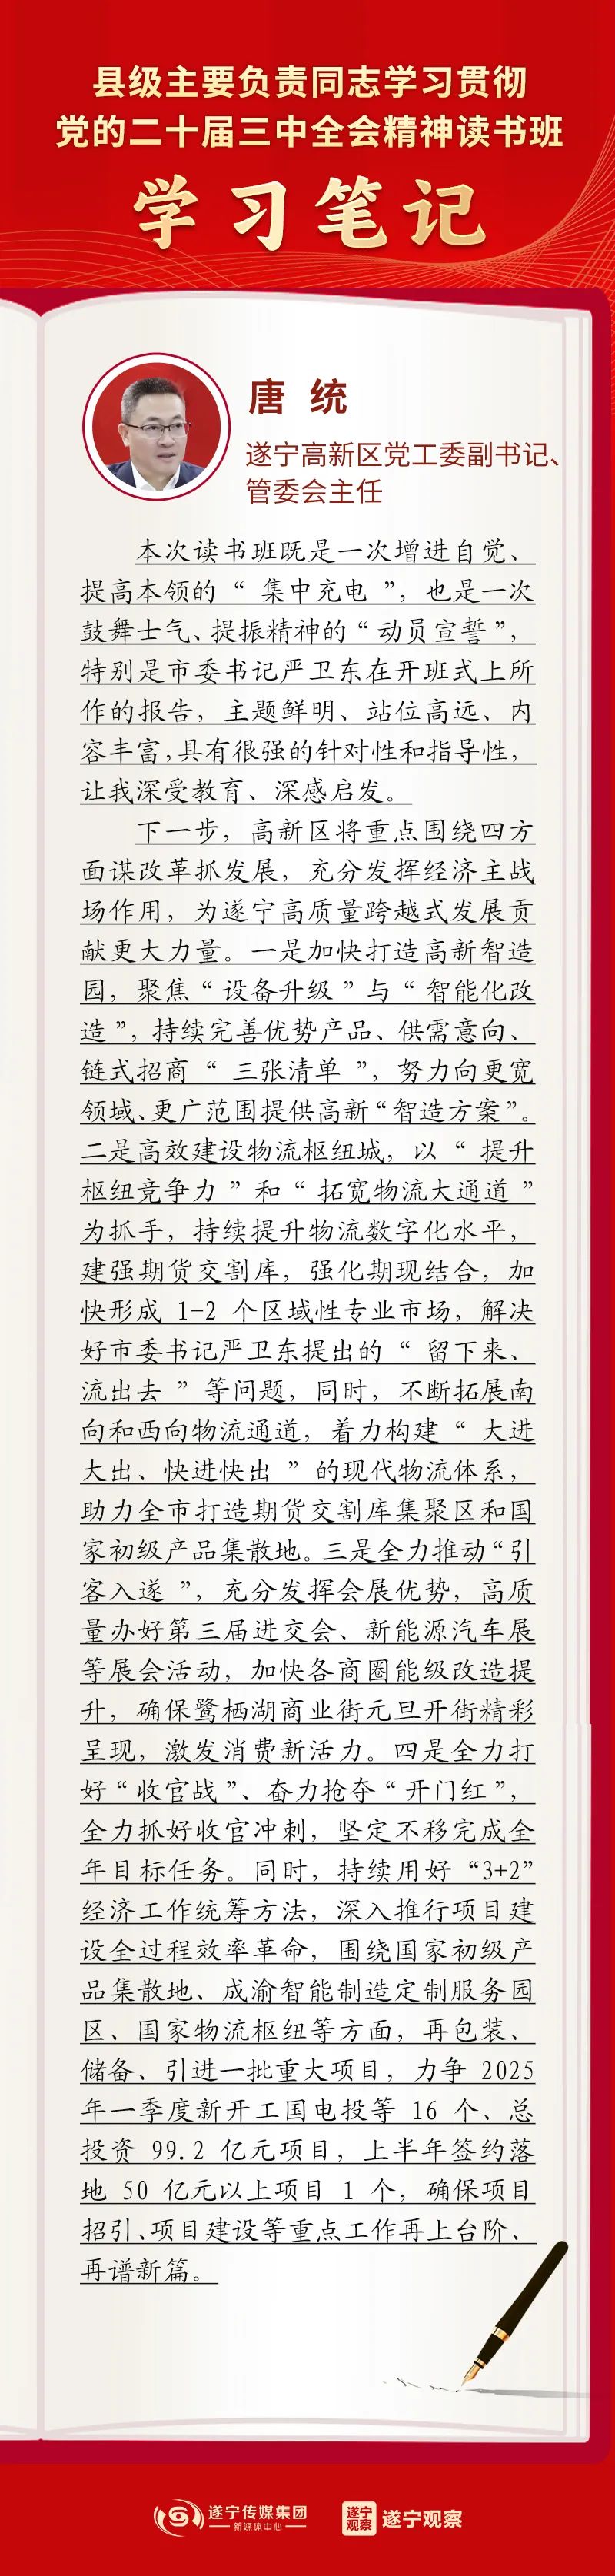 县级主要负责同志学习贯彻
党的二十届三中全会精神读书班
学习笔记
唐 统
遂宁高新区党工委副书记、
管委会主任
本次读书班既是一次增进自觉、
提高本领的“ 集中充电 ”，也是一次
鼓舞士气、提振精神的“动员宣誓”，
特别是市委书记严卫东在开班式上所
作的报告，主题鲜明、站位高远、内
容丰富，具有很强的针对性和指导性，
让我深受教育、深感启发。
下一步，高新区将重点围绕四方
面谋改革抓发展，充分发挥经济主战
场作用，为遂宁高质量跨越式发展贡
献更大力量。一是加快打造高新智造
园，聚焦“设备升级”与“智能化改
造”，持续完善优势产品、供需意向、
链式招商“ 三张清单 ”，努力向更宽
领域、更广范围提供高新“智造方案”。
二是高效建设物流枢纽城，以“ 提升
枢纽竞争力 ”和“ 拓宽物流大通道 ”
为抓手，持续提升物流数字化水平，
建强期货交割库，强化期现结合，加
快形成 1-2 个区域性专业市场，解决
好市委书记严卫东提出的“ 留下来、
流出去 ”等问题，同时，不断拓展南
向和西向物流通道，着力构建“ 大进
大出、快进快出 ”的现代物流体系，
助力全市打造期货交割库集聚区和国
家初级产品集散地。三是全力推动“引
客入遂 ”，充分发挥会展优势，高质
量办好第三届进交会、新能源汽车展
等展会活动，加快各商圈能级改造提
升，确保鹭栖湖商业街元旦开街精彩
呈现，激发消费新活力。四是全力打
好“收官战”、奋力抢夺“开门红”，
全力抓好收官冲刺，坚定不移完成全
年目标任务。同时，持续用好“3+2”
经济工作统筹方法，深入推行项目建
设全过程效率革命，围绕国家初级产
品集散地、成渝智能制造定制服务园
区、国家物流枢纽等方面，再包装、
储备、引进一批重大项目，力争 2025
年一季度新开工国电投等 16 个、总
投资 99.2 亿元项目，上半年签约落
地 50 亿元以上项目 1 个，确保项目
招引、项目建设等重点工作再上台阶、
再谱新篇。
遂宁传媒集团
新媒体中心
遂宁
观察
遂宁观察